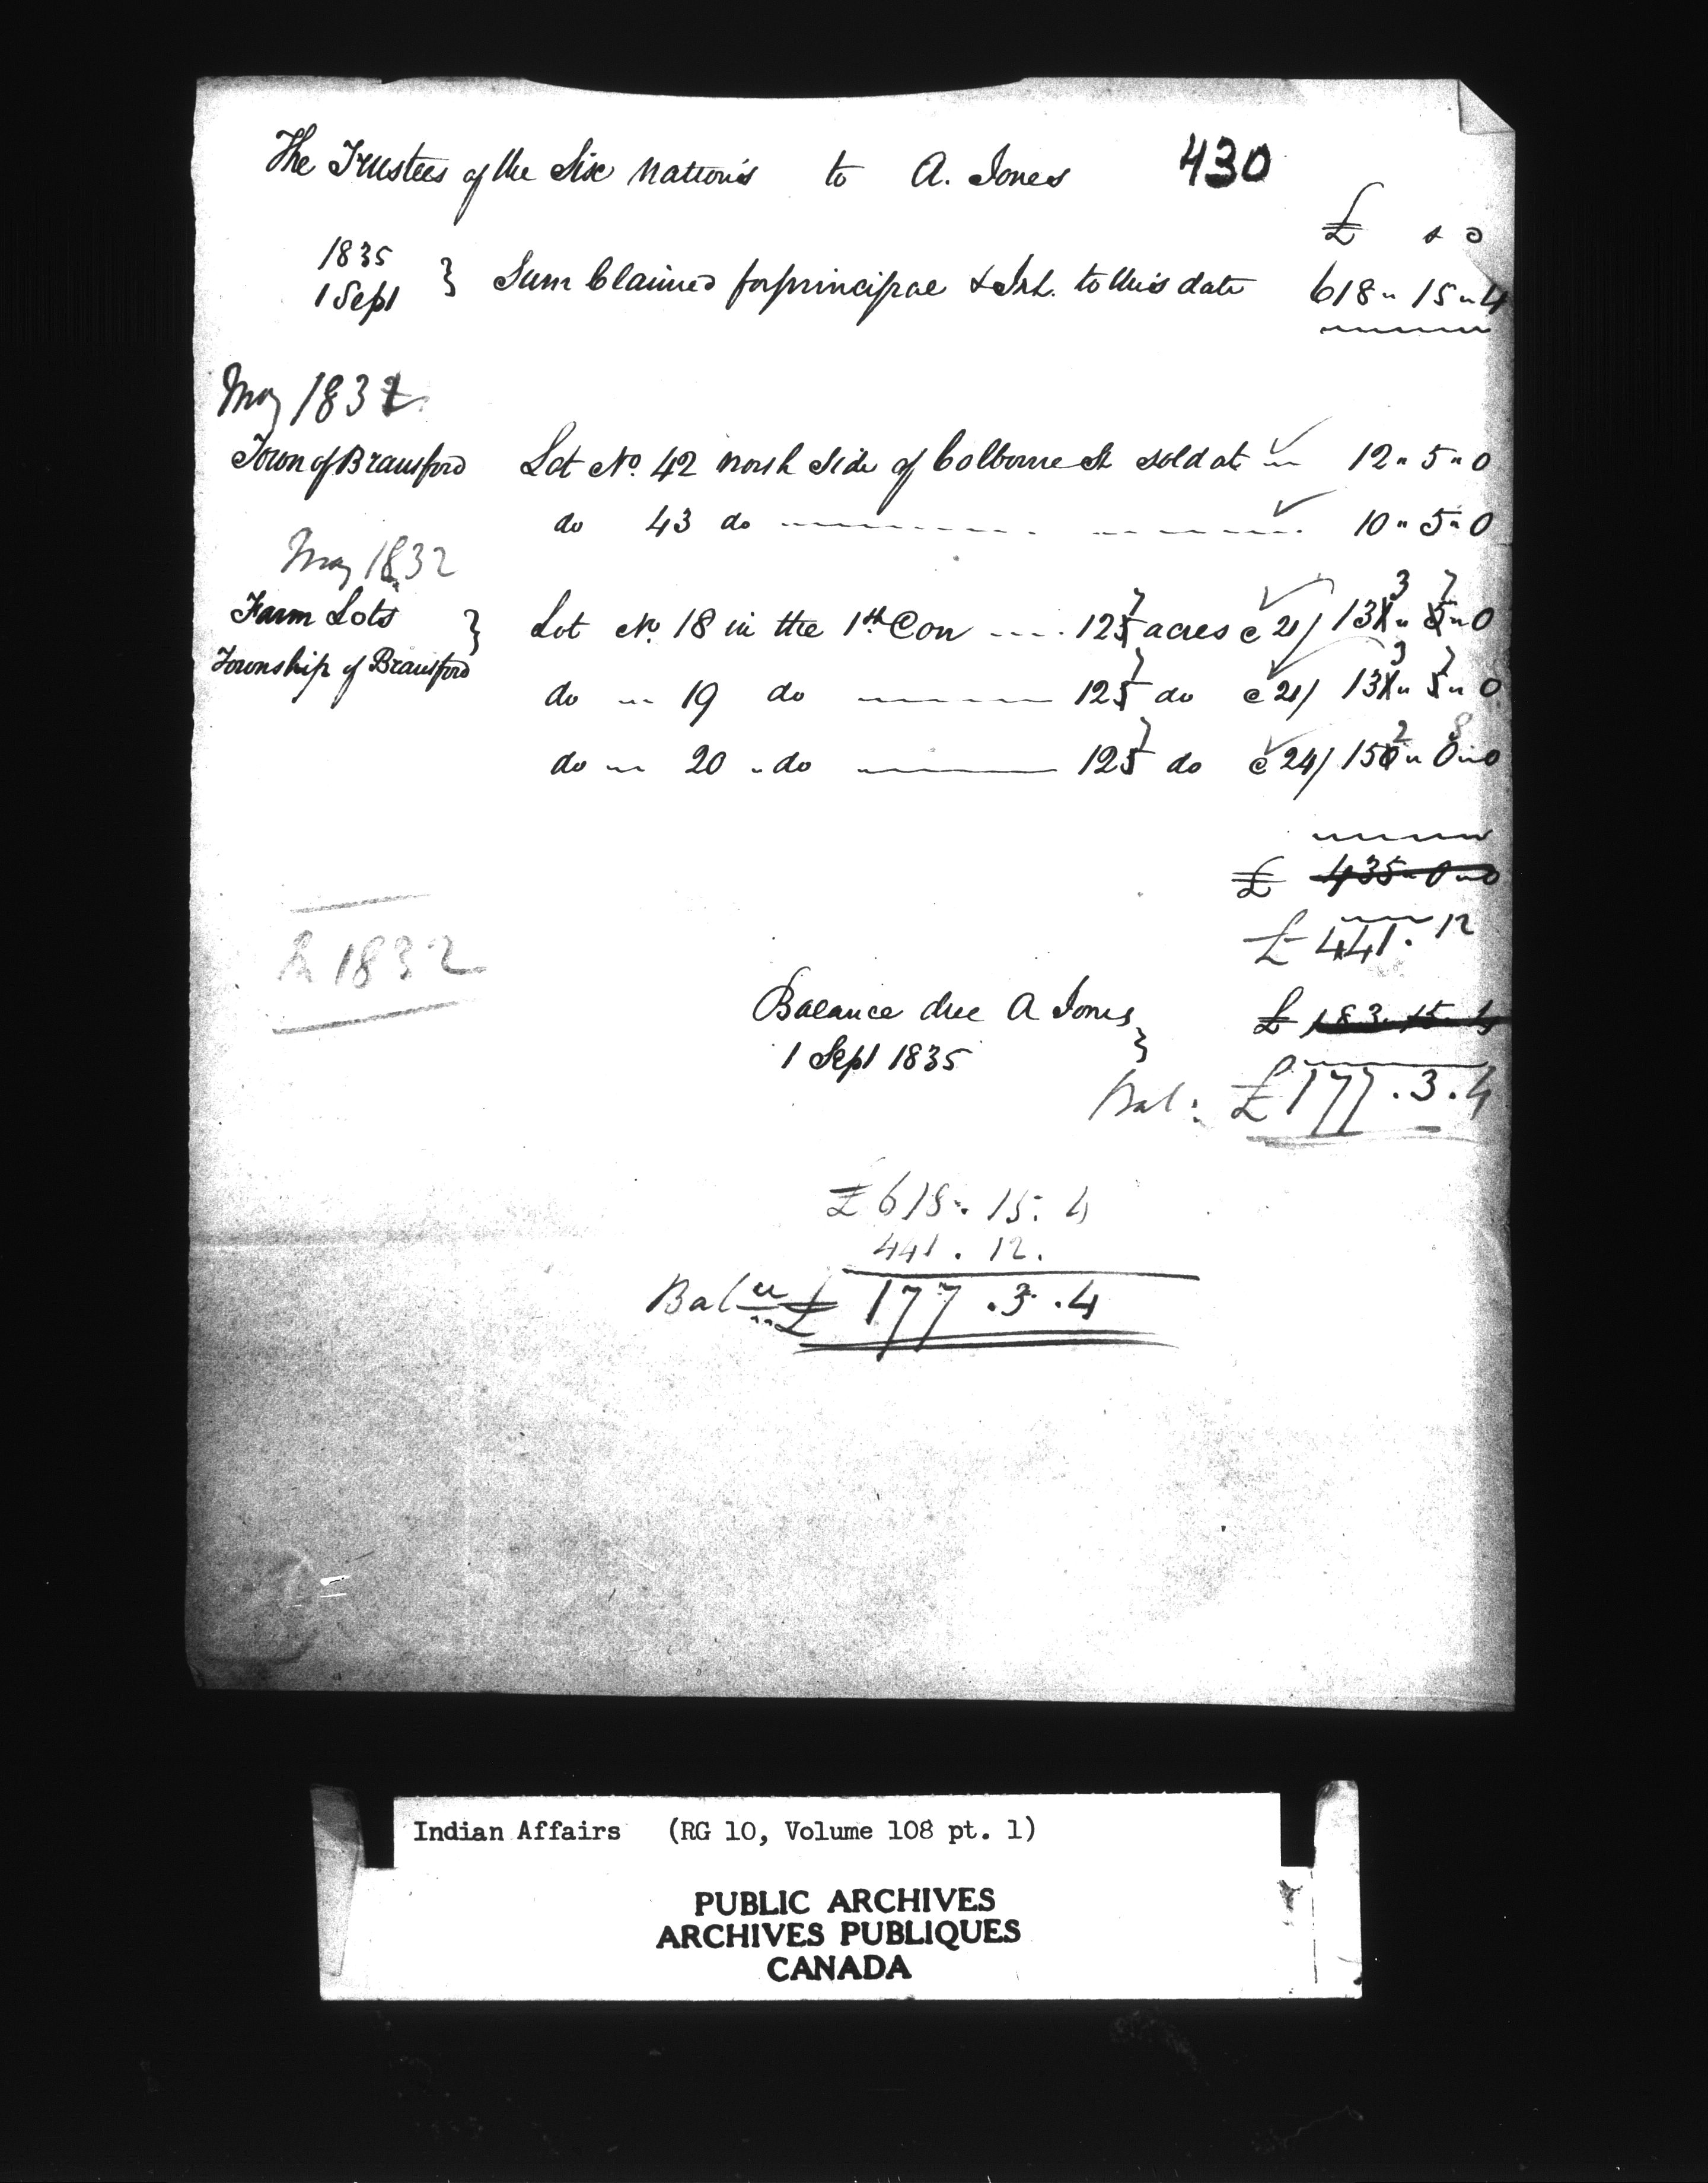 The Trustees of the Six Nation's to A. Jones 430
£ s D
1835
1 Sept } Sum Claimed for principal & Int. to this date 618 " 15 " 4
May 1832
Town of Brantford Lot No. 42 North Side of Colborne St sold at 12 " 5 " 0
do 43 do 10 " 5 " 0
May 1832
Farm Lots
Township of Brantford } Lot No. 18 in the 1st Con .... 127 acres @ 21/ 133 " 7 " 0
do " 19 do 127 do @ 21/ 133 " 7 " 0
do " 20 " do 127 do @ 24/ 152 " 8 " 0
£ 435 " 0 " 0
£ 441 . 12
1832
Balance due A Jones } £ 183 . 15 . 4
1 Sept 1835
Bal: £ 177 . 3 . 4
£ 618 . 15 : 4
441 . 12 .
Balce £ 177 . 3 . 4
Indian Affairs (RG 10, Volume 108 pt. 1)
PUBLIC ARCHIVES
ARCHIVES PUBLIQUES
CANADA